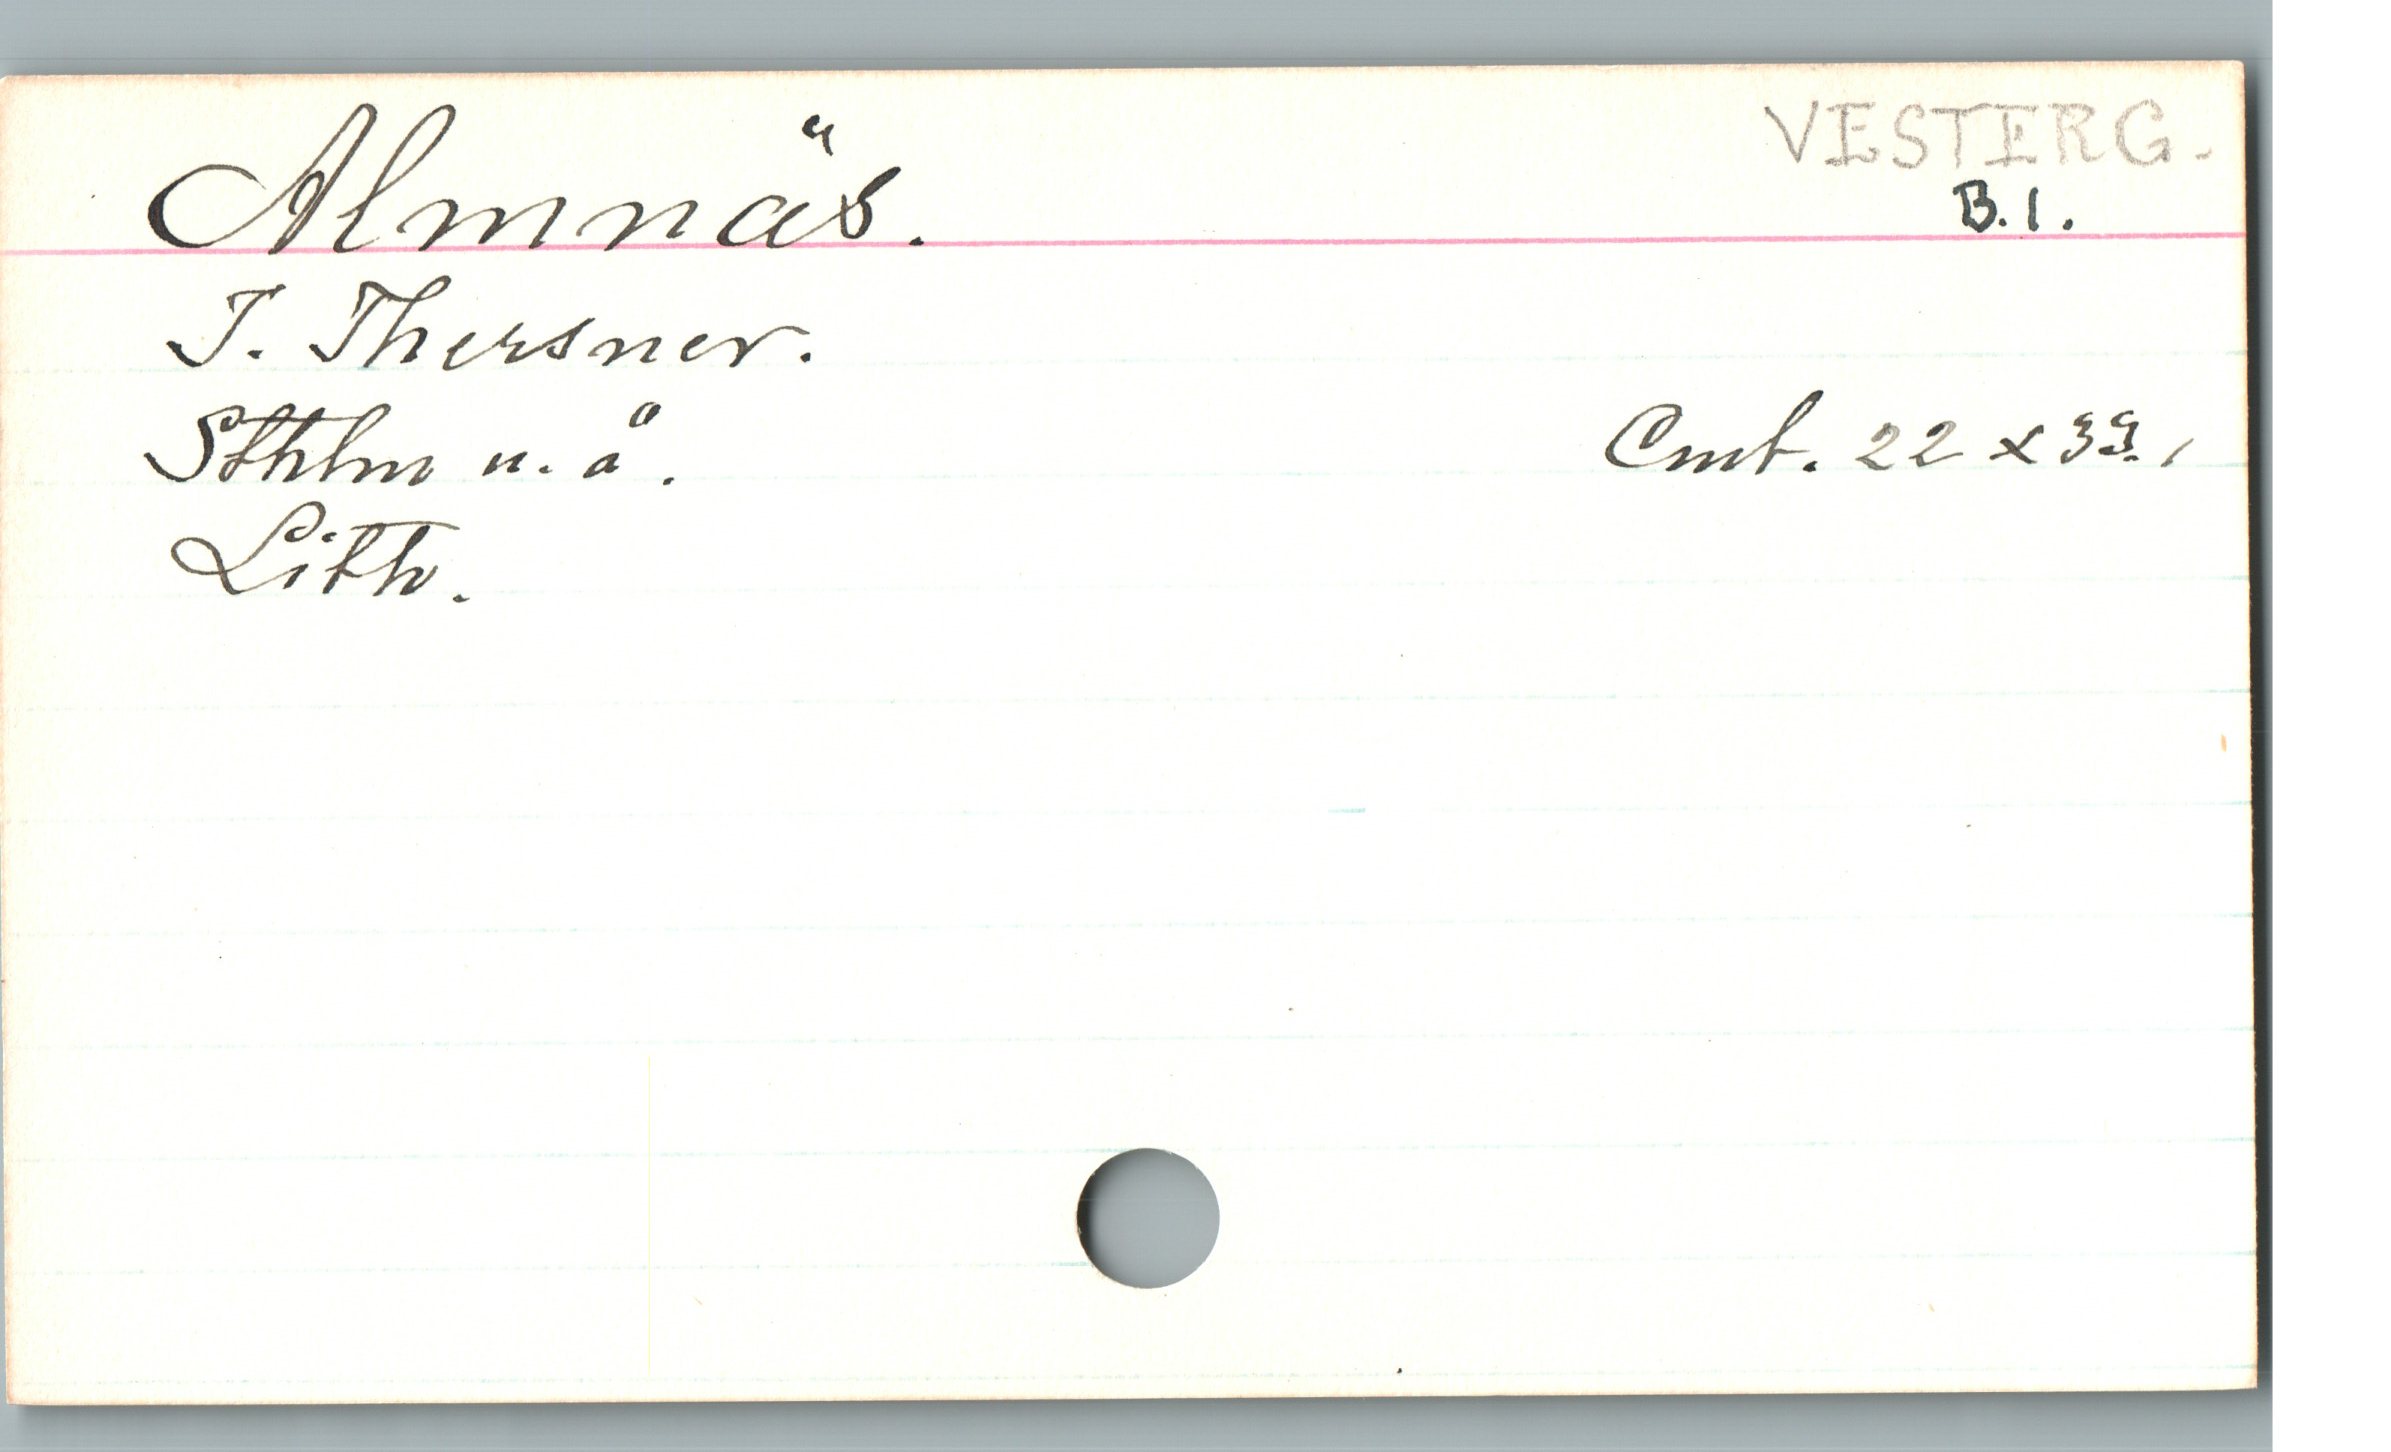 Almnäs.
VESTERG.
B. 1.
T. Thersner.
Sthlm u. å.
Cmt. 22 x 33.
Lith.